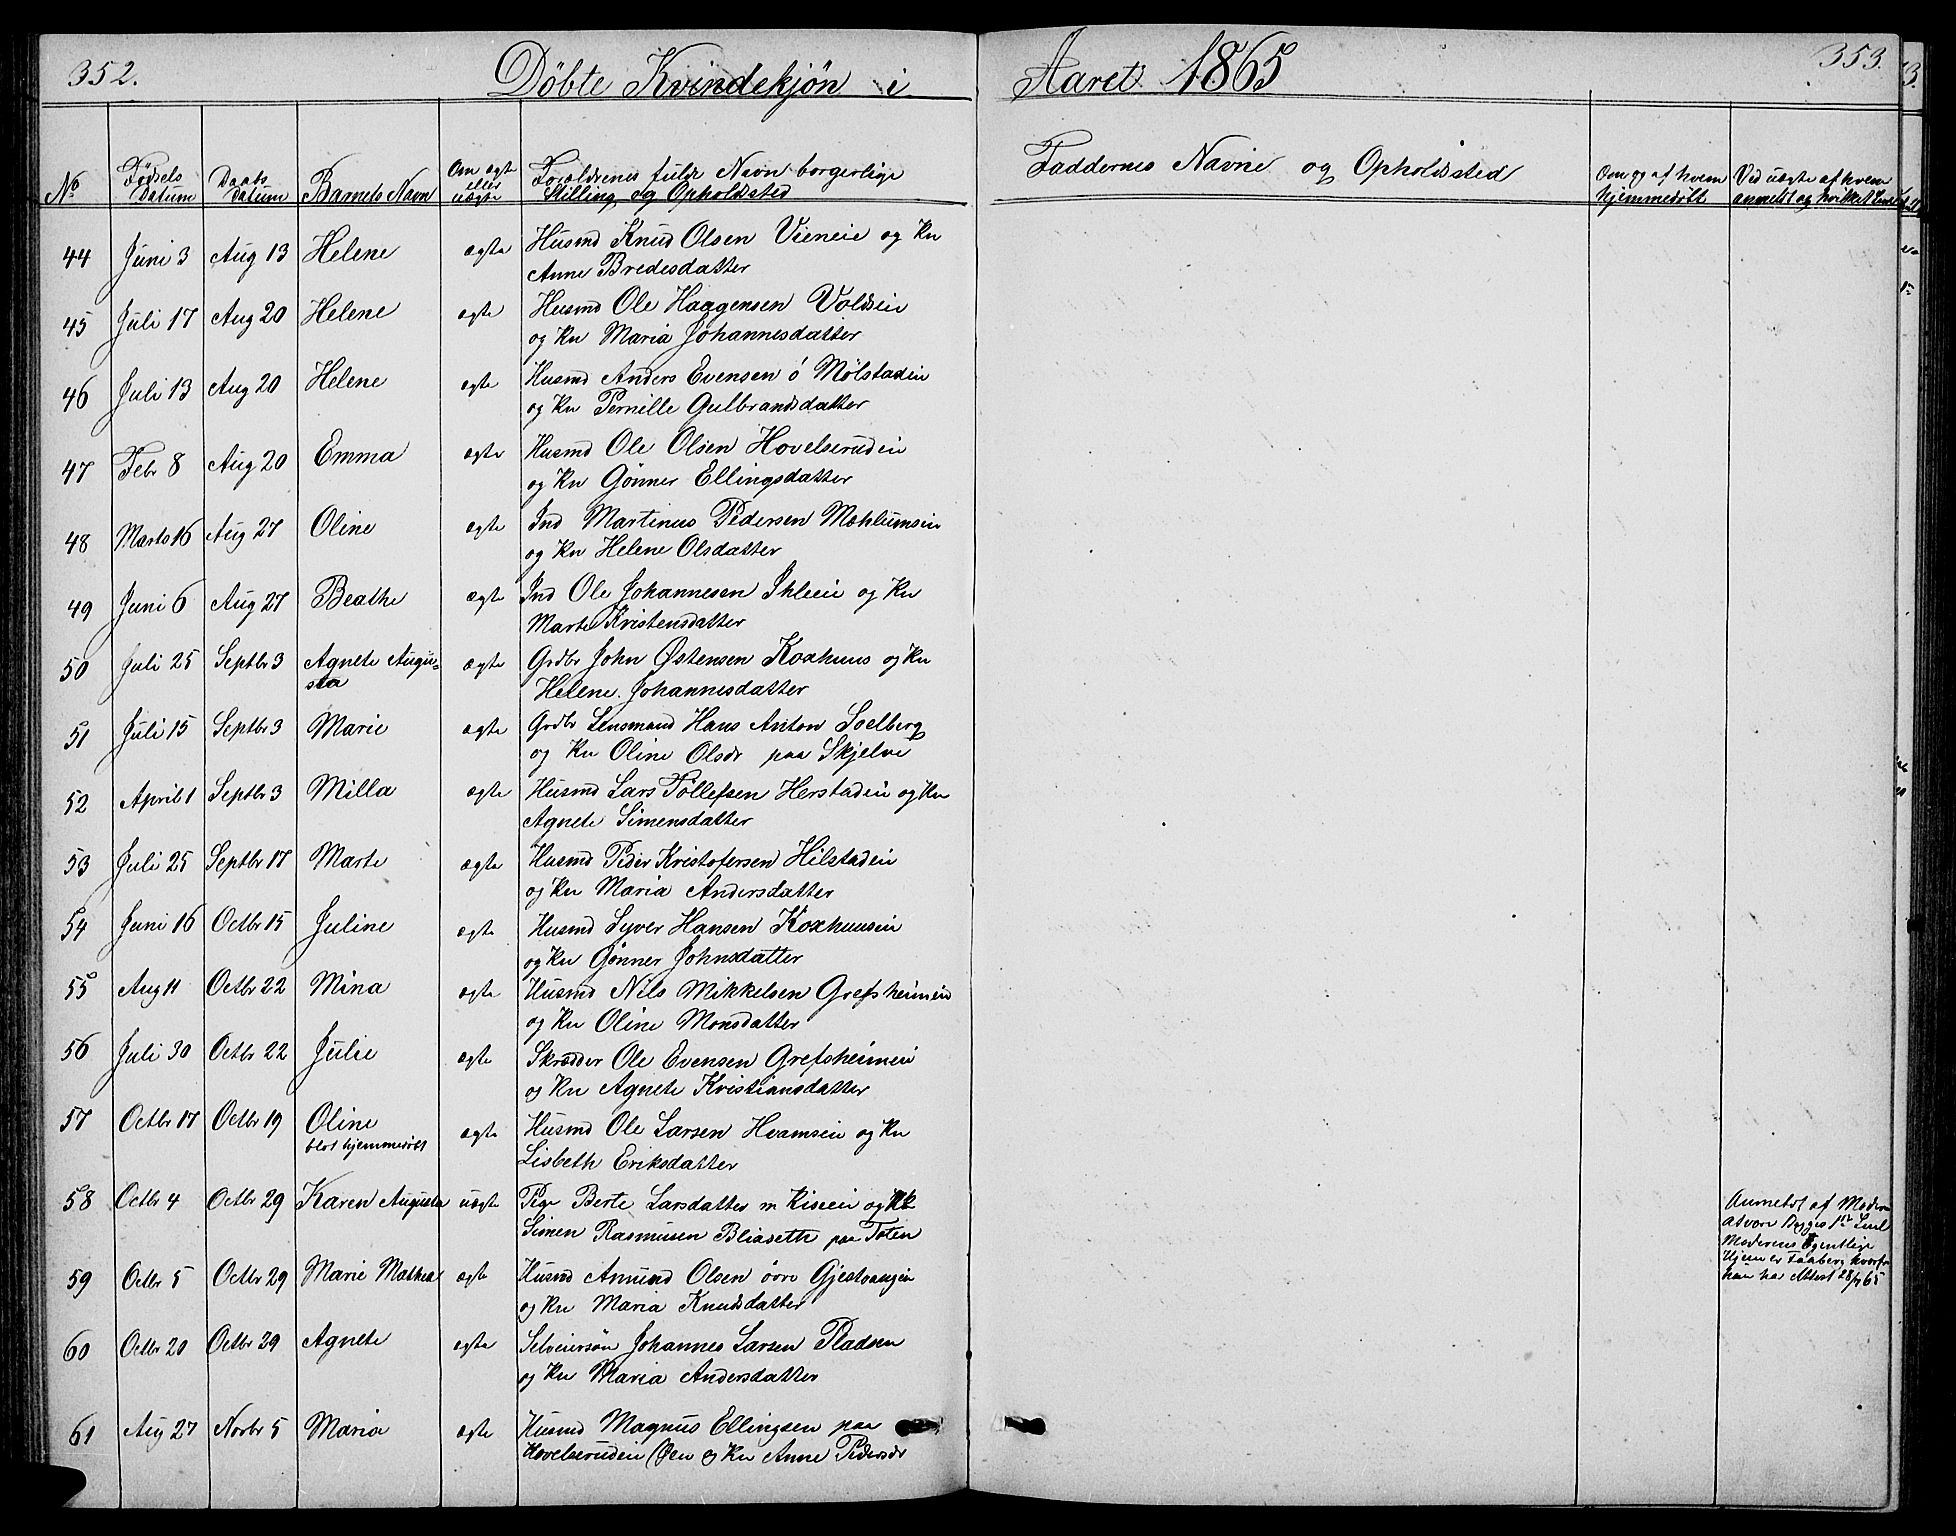 352.
Døbte Kvindekjøn i
Aaret 1865
353.
No
Fødsels Datum
Daabs Datum
Barnets Navn
Om ægte eller uægte
Forældrenes fulde Navn borgerlige Stilling og Opholdsted
Faddernes Navne og Opholdsted
Om og af hvem hjemmedöbt
Ved uægte af hvem anmeldt og hvilket Leiel
44 Juni 3 Aug 13 Helene ægte Husmd Knud Olsen Vieneie og Kn
Anne Bredesdatter
45 Juli 17 Aug 20 Helene ægte Husmd Ole Haagensen Voldeie
og Kn Maria Johannesdatter
46 Juli 13 Aug 20 Helene ægte Husmd Anders Evensen ö Mølstadeie
og Kn Pernille Gulbrandsdatter
47 Febr 8 Aug 20 Emma ægte Husmd Ole Olsen Hovelserudeie
og Kn Gönner Ellingsdatter
48 Marts 16 Aug 27 Oline ægte Ind Martinus Pedersen Mæhlumseie
og Kn Helene Olsdatter
49 Juni 6 Aug 27 Beathe ægte Ind Ole Johannesen Ihleeie og Kn
Marte Kristensdatter
50 Juli 25 Septbr 3 Agnete Augu=
sta ægte Grdbr John Østensen Koxhuus og Kn
Helene Johannesdatter
51 Juli 15 Septbr 3 Marie ægte Grdbr Lensmand Hans Anton Soelberg
og Kn Oline Olsdr paa Skjelve
52 April 1 Septbr 3 Milla ægte Husmd Lars Töllefsen Herstadeie og Kn
Agnete Simensdatter
53 Juli 25 Septbr 17 Marte ægte Husmd Peder Kristofersen Hilstadeie
og Kn Maria Andersdatter
54 Juni 16 Octbr 15 Juline ægte Husmd Syver Hansen Koxhuuseie
og Kn Gönner Johnsdatter
55 Aug 11 Octbr 22 Mina ægte Husmd Nils Mikkelsen Grefsheimeie
og Kn Oline Monsdatter
56 Juli 30 Octbr 22 Julie ægte Skrædder Ole Evensen Grefsheimeie
og Kn Agnete Kristiansdatter
57 Octbr 17 Octbr 19 Oline
blot hjemmedöbt ægte Husmd Ole Larsen Hvamseie og Kn
Lisbeth Eriksdatter
58 Octbr 4 Octbr 29 Karen Augusta uægte Pige Berte Larsdatter m Kiseeie og Uk
Simen Rasmusen Bliaseth paa Toten
Anmeldt af Moderen
at være Begges 1ste Leiel
Moderens Egentlige
Hjem er Faaberg hvorfra
hun har Attest 28/9 65
59 Octbr 5 Octbr 29 Marie Mathea ægte Husmd Amund Olsen övre Gjestvangeie
og Kn Maria Knudsdatter
60 Octbr 20 Octbr 29 Agnete ægte Selveiersön Johannes Larsen Pladsen
og Kn Maria Andersdatter
61 Aug 27 Novbr 5 Maria ægte Husmd Magnus Ellingsen paa
Hovelserudeie Øen og Kn Anne Pedersdr